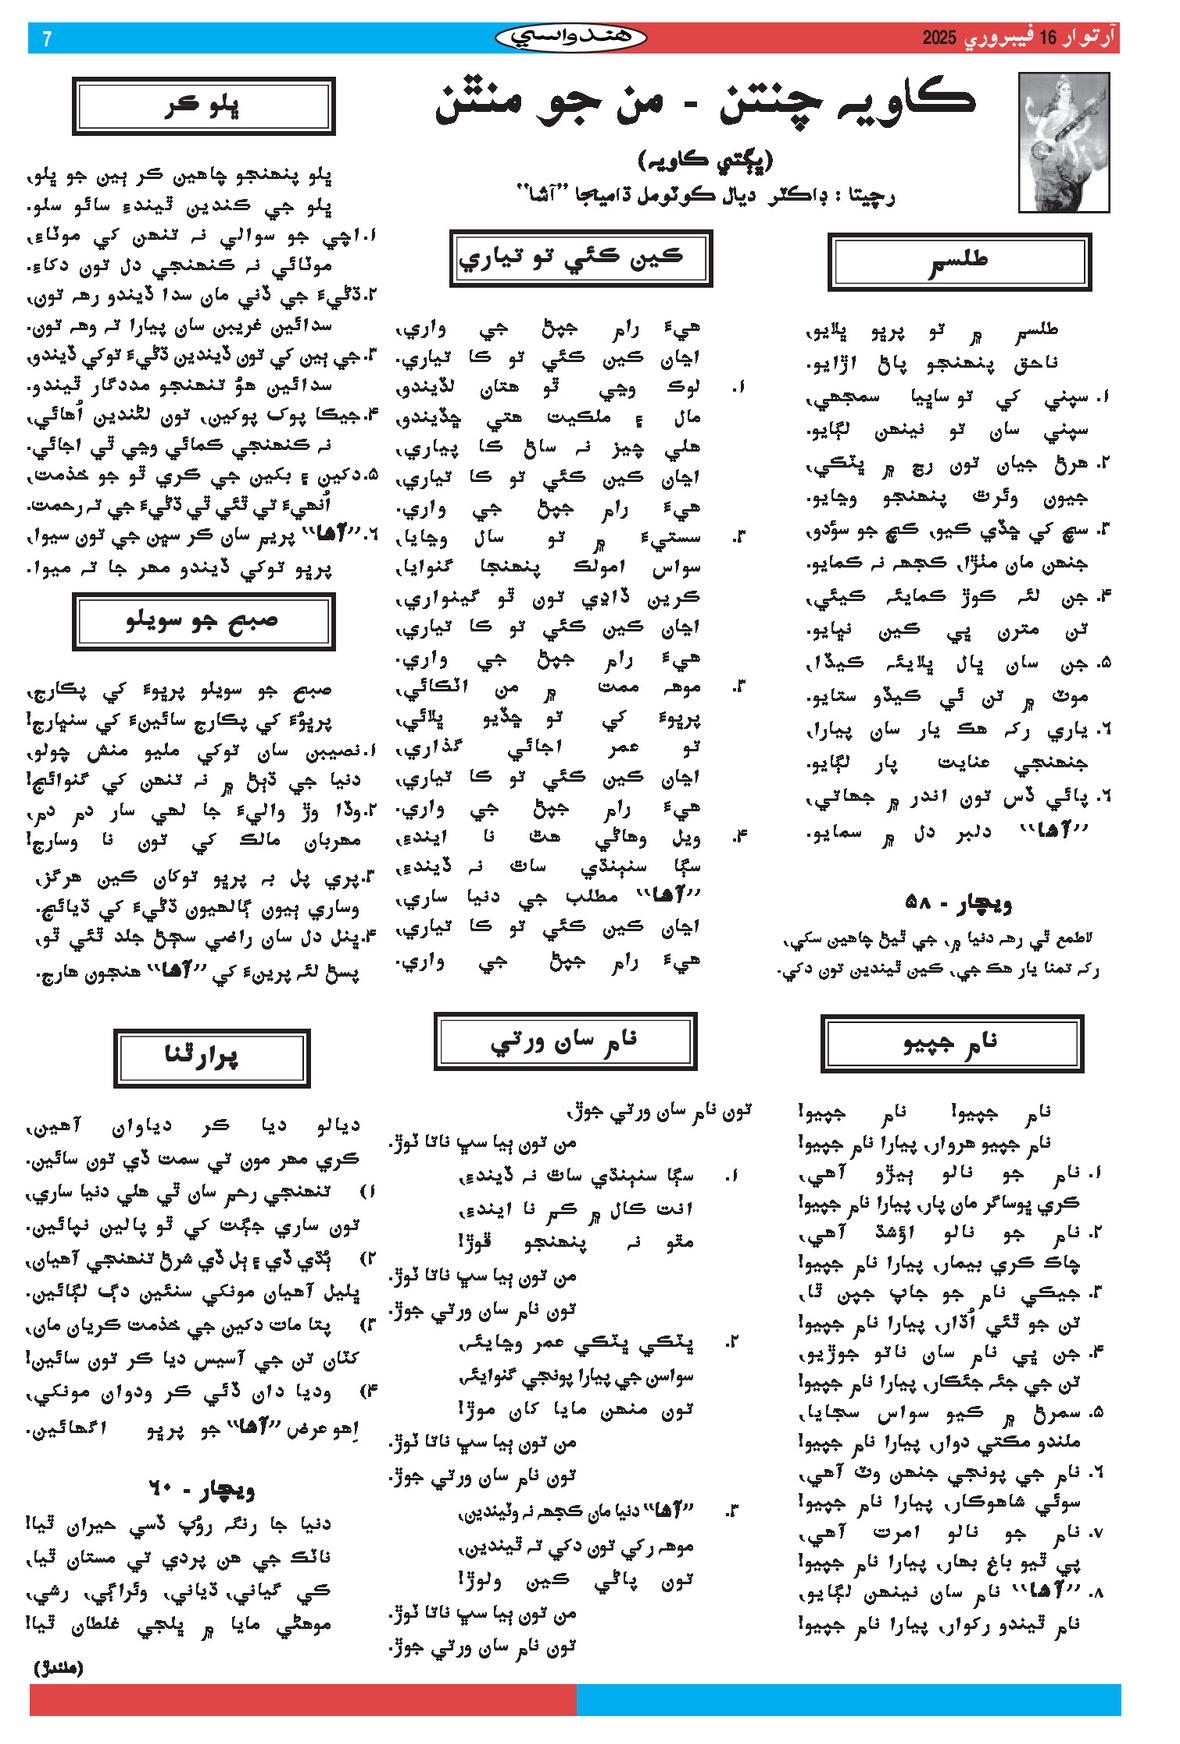 آرتوار 16 فيبروري 2025
هندواسي
7
ڪاويہ چنتن - من جو منٿن
(ڀڳتي ڪاويہ)
رچيتا : ڊاڪٽر ديال ڪوٽومل ڌاميڄا ”آشا“
طلسم
طلسم ۾ تو پرڀو ڀلايو،
ناحق پنهنجو پاڻ اڙايو.
۱. سپني کي تو ساڀيا سمجهي،
سپني سان تو نينهن لڳايو.
۲. هرڻ جيان تون رڃ ۾ ڀٽڪي،
جيون وئرٿ پنهنجو وڃايو.
۳. سچ کي ڇڏي ڪيو، ڪچ جو سؤدو،
جنهن مان مٺڙا، ڪجهہ نہ ڪمايو.
۴. جن لئہ ڪوڙ ڪمايئہ ڪيئي،
تن مترن ڀي ڪين نڀايو.
۵. جن سان ڀال ڀلايئہ ڪيڏا،
موٽ ۾ تن ئي ڪيڏو ستايو.
۶. ياري رکہ هڪ يار سان پيارا،
جنهنجي عنايت پار لڳايو.
۶. پائي ڏس تون اندر ۾ جهاتي،
”آشا“ دلبر دل ۾ سمايو.
ويچار - ۵۸
لاطمع ٿي رهہ دنيا ۾، جي ٿيڻ چاهين سکي،
رکہ تمنا يار هڪ جي، ڪين ٿيندين تون دکي.
ڪين ڪئي تو تياري
هيءَ رام جپڻ جي واري،
اڃان ڪين ڪئي تو ڪا تياري.
۱. لوڪ وڃي ٿو هتان لڏيندو،
مال ۽ ملڪيت هتي ڇڏيندو،
هلي چيز نہ ساڻ ڪا پياري،
اڃان ڪين ڪئي تو ڪا تياري،
هيءَ رام جپڻ جي واري.
۲. سستيءَ ۾ تو سال وڃايا،
سواس امولڪ پنهنجا گنوايا،
ڪرين ڏاڍي تون ٿو گينواري،
اڃان ڪين ڪئي تو ڪا تياري،
هيءَ رام جپڻ جي واري.
۳. موهہ ممت ۾ من اٽڪائي،
پرڀوءَ کي تو ڇڏيو ڀلائي،
تو عمر اجائي گذاري،
اڃان ڪين ڪئي تو ڪا تياري،
هيءَ رام جپڻ جي واري.
۴. ويل وهاڻي هٿ نا ايندءِ،
سڳا سنٻنڌي ساٿ نہ ڏيندءِ،
”آشا“ مطلب جي دنيا ساري،
اڃان ڪين ڪئي تو ڪا تياري،
هيءَ رام جپڻ جي واري.
ڀلو ڪر
ڀلو پنهنجو چاهين ڪر ٻين جو ڀلو،
ڀلو جي ڪندين ٿيندءِ سائو سلو.
۱. اچي جو سوالي نہ تنهن کي موٽاءِ،
موٽائي نہ ڪنهنجي دل تون دکاءِ.
۲. ڌڻيءَ جي ڏني مان سدا ڏيندو رهہ تون،
سدائين غريبن سان پيارا تہ وهہ تون.
۳. جي ٻين کي تون ڏيندين ڌڻيءَ توکي ڏيندو،
سدائين هوُ تنهنجو مددگار ٿيندو.
۴. جيڪا پوک پوکين، تون لڻندين اُهائي،
نہ ڪنهنجي ڪمائي وڃي ٿي اجائي.
۵. دکين ۽ بکين جي ڪري ٿو جو خذمت،
اُنهيءَ تي ٿئي ٿي ڌڻيءَ جي تہ رحمت.
۶. ”آشا“ پريم سان ڪر سڀن جي تون سيوا،
پرڀو توکي ڏيندو مهر جا تہ ميوا.
صبح جو سويلو
صبح جو سويلو پرڀوءَ کي پڪارج،
پرڀوُءَ کي پڪارج سائينءَ کي سنڀارج!
۱. نصيبن سان توکي مليو منش چولو،
دنيا جي ڌٻڻ ۾ نہ تنهن کي گنوائج!
۲. وڏا وڙ واليءَ جا لهي سار دم دم،
مهربان مالڪ کي تون نا وسارج!
۳. پري پل بہ پرڀو توکان ڪين هرگز،
وساري ٻيون ڳالهيون ڌڻيءَ کي ڌيائج.
۴. ڀنل دل سان راضي سڄڻ جلد ٿئي ٿو،
پسڻ لئہ پرينءَ کي ”آشا“ هنجون هارج.
نام جپيو
نام جپيو! نام جپيو!
نام جپيو هروار، پيارا نام جپيو!
۱. نام جو نالو ٻيڙو آهي،
ڪري ڀوساگر مان پار، پيارا نام جپيو!
۲. نام جو نالو اؤشڌ آهي،
چاڪ ڪري بيمار، پيارا نام جپيو!
۳. جيڪي نام جو جاپ جپن ٿا،
تن جو ٿئي اُڌار، پيارا نام جپيو!
۴. جن ڀي نام سان ناتو جوڙيو،
تن جي جئہ جئڪار، پيارا نام جپيو!
۵. سمرڻ ۾ ڪيو سواس سجايا،
ملندو مڪتي دوار، پيارا نام جپيو!
۶. نام جي پونجي جنهن وٽ آهي،
سوئي شاهوڪار، پيارا نام جپيو!
۷. نام جو نالو امرت آهي،
پي ٿيو باغ بهار، پيارا نام جپيو!
۸. ”آشا“ نام سان نينهن لڳايو،
نام ٿيندو رکوار، پيارا نام جپيو!
نام سان ورتي
تون نام سان ورتي جوڙ،
من تون ٻيا سڀ ناتا ٽوڙ.
۱. سڳا سنٻنڌي ساٿ نہ ڏيندءِ،
انت ڪال ۾ ڪم نا ايندءِ،
مٿو نہ پنهنجو ڦوڙ!
من تون ٻيا سڀ ناتا ٽوڙ.
تون نام سان ورتي جوڙ.
۲. ڀٽڪي ڀٽڪي عمر وڃايئہ،
سواسن جي پيارا پونجي گنوايئہ،
تون منهن مايا کان موڙ!
من تون ٻيا سڀ ناتا ٽوڙ.
تون نام سان ورتي جوڙ.
۳. ”آشا“ دنيا مان ڪجهہ نہ وٺيندين،
موهہ رکي تون دکي تہ ٿيندين،
تون پاڻي ڪين ولوڙ!
من تون ٻيا سڀ ناتا ٽوڙ.
تون نام سان ورتي جوڙ.
پرارٿنا
ديالو ديا ڪر دياوان آهين،
ڪري مهر مون تي سمت ڏي تون سائين.
۱) تنهنجي رحم سان ٿي هلي دنيا ساري،
تون ساري جڳت کي ٿو پالين نپائين.
۲) ٻُڌي ڏي ۽ ٻل ڏي شرڻ تنهنجي آهيان،
ڀليل آهيان مونکي سنئين دڳ لڳائين.
۳) پتا مات دکين جي خذمت ڪريان مان،
کٽان تن جي آسيس ديا ڪر تون سائين!
۴) وديا دان ڏئي ڪر ودوان مونکي،
اِهو عرض ”آشا“ جو پرڀو اگهائين.
ويچار - ۶۰
دنيا جا رنگہ روُپ ڏسي حيران ٿيا!
ناٽڪ جي هن پردي تي مستان ٿيا،
ڪي گياني، ڌياني، وئراڳي، رشي،
موهڻي مايا ۾ ڀلجي غلطان ٿيا!
(هلندڙ)